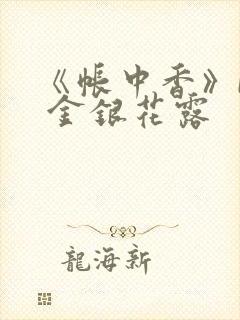 《帳中香》
金銀花露
龍海新